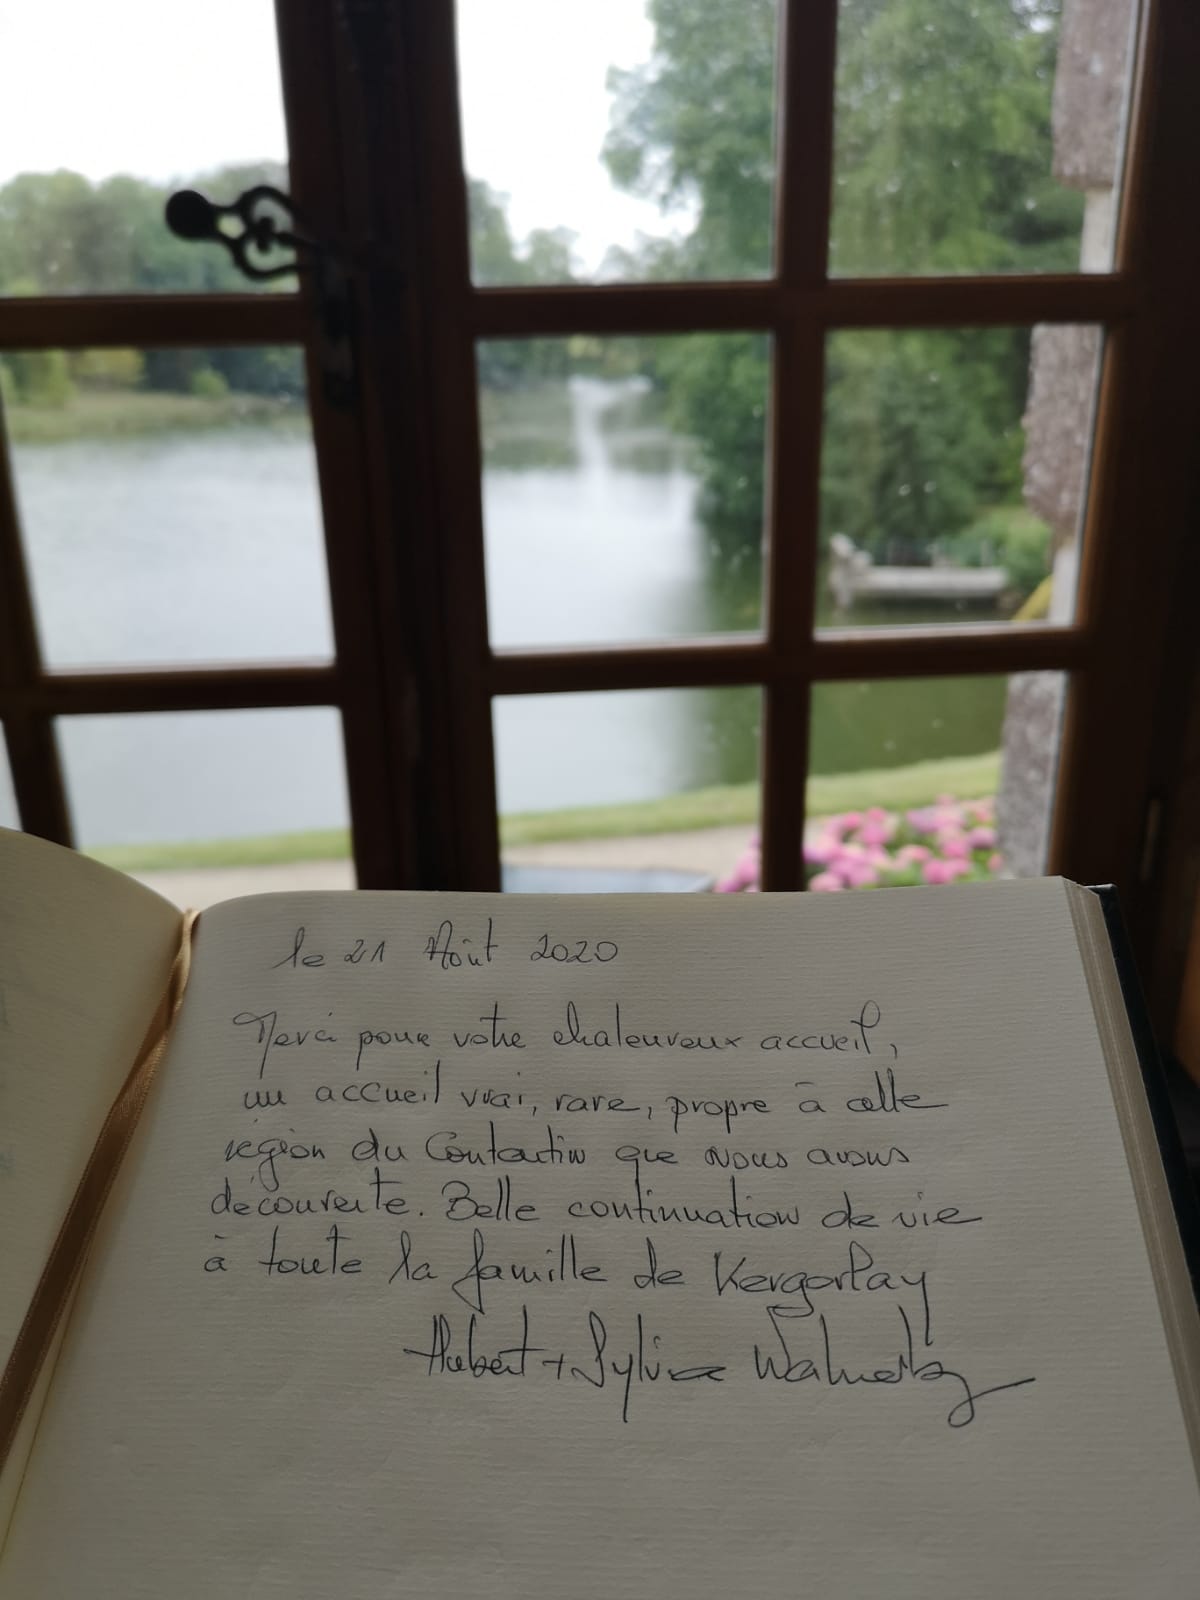 le 21 Août 2020
Merci pour votre chaleureux accueil,
un accueil vrai, rare, propre à cette
région du Contentin que nous avons
découverte. Belle continuation de vie
à toute la famille de Kergorlay
Hubert + Sylvie